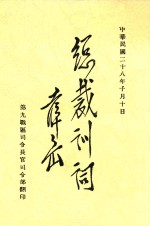 中華民國二十八年十月十日
總裁訓詞
薛岳
第九戰區司令長官司令部翻印